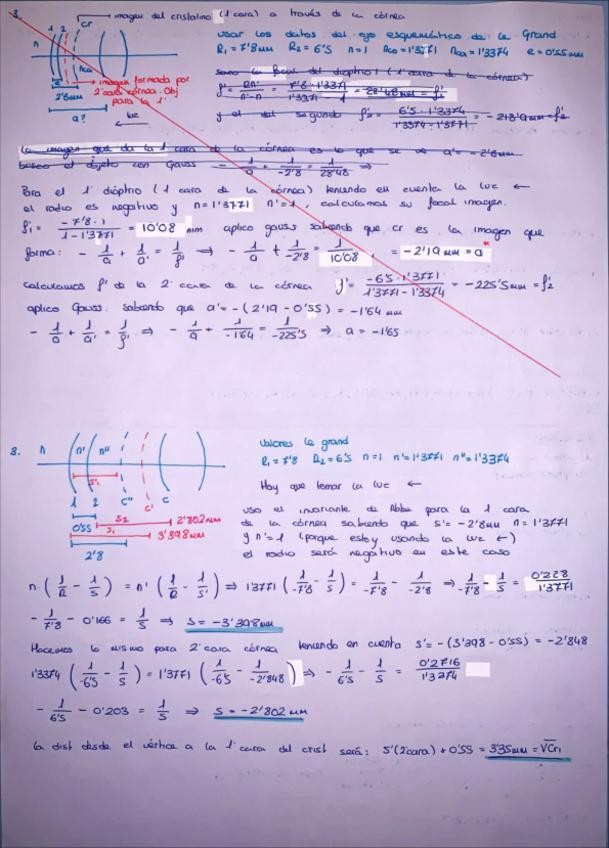 3.
imagen del cristalino (1 cara) a través de la córnea
1 2 cr
n
nca
e
imagen formada por
2 cara córnea. Obj
para la 1'
2'8mm
a?
luz
usar los datos del ojo esquemático de Le Grand
R₁ = 7'8 mm R₂ = 6'5 n=1 nco = 1'3771 nca = 1'3374 e = 0'55 mm
la focal del dioptrio 1 (1 cara de la córnea)
f' = Rn'/n'-n = 7'8·1'3771/1'3771-1 = 28'48 mm = f₁'
y el del segundo f₂' = 6'5·1'3374/1'3374-1'3771 = -218'9 mm = f₂'
La imagen que da la 1 cara de la córnea es lo que se ve a' = -2'8mm
busco el objeto con Gauss -1/a + 1/-2'8 = 1/28'48 ⇒
Para el 1' dióptrio (1 cara de la córnea) teniendo en cuenta la luz ←
el radio es negativo y n = 1'3771 n' = 1, calculamos su focal imagen.
f₁' = -7'8·1/1-1'3771 = 10'08 mm aplico gauss sabiendo que cr es la imagen que
forma: -1/a + 1/a' = 1/f' ⇒ -1/a + 1/-2'8 = 1/10'08, = -2'19 mm = a*
Calculamos f' de la 2' cara de la córnea f' = -6'5·1'3771/1'3771-1'3374 = -225'5 mm = f₂'
aplico Gauss. Sabiendo que a' = -(2'19 - 0'55) = -1'64 mm
-1/a + 1/a' = 1/f' ⇒ -1/a + 1/-1'64 = 1/-225'5 ⇒ a = -1'65
3.
n n' n''
s'₁
1 2 c'' c' c
0'55 s₂ 2'802mm
s₁ 3'398mm
2'8
Valores le grand
R₁ = 7'8 R₂ = 6'5 n=1 n' = 1'3771 n'' = 1'3374
Hay que tomar la luz ←
uso el invariante de Abbe para la 1 cara
de la córnea sabiendo que s' = -2'8mm n = 1'3771
y n' = 1 (porque estoy usando la luz ←)
el radio será negativo en este caso
n·(1/R - 1/s) = n'(1/R - 1/s') ⇒ 1'3771 (1/-7'8 - 1/s) = 1/-7'8 - 1/-2'8 ⇒ 1/-7'8 - 1/s = 0'228/1'3771
-1/7'8 - 0'166 = 1/s ⇒ s = -3'398mm
Hacemos lo mismo para 2' cara córnea teniendo en cuenta s' = -(3'398 - 0'55) = -2'848
1'3374 (1/-6'5 - 1/s) = 1'3771 (1/-6'5 - 1/-2'848) ⇒ -1/6'5 - 1/s = 0'2716/1'3374
-1/6'5 - 0'203 = 1/s ⇒ s = -2'802 mm
la dist desde el vértice a la 1' cara del crist será: s'(2'cara) + 0'55 = 3'35 mm = VCr₁